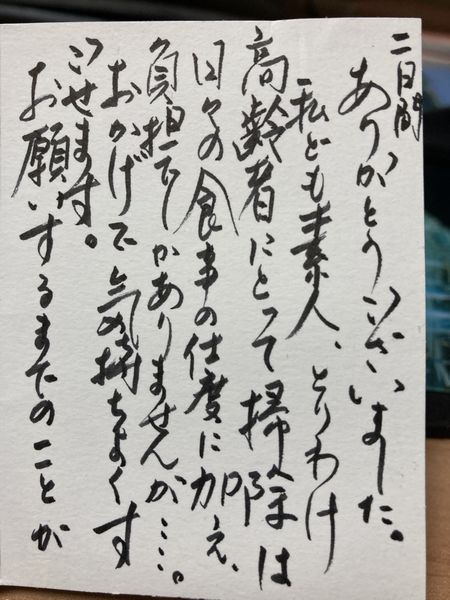 二日間
ありがとうございました。
私ども素人、とりわけ
高齢者にとって掃除は
日々の食事の仕度に加え、
負担でしかありませんが….。
おかげで気持ちよくす
ごせます。
お願いするまでのことが